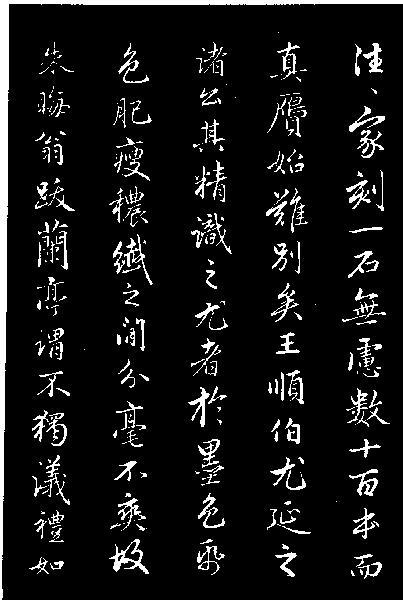 往々家刻一石無慮數十百本而
真贗始難別矣王順伯尤延之
諸公其精識之尤者於墨色紙
色肥瘦穠纖之間分毫不爽故
朱晦翁跋蘭亭謂不獨議禮如